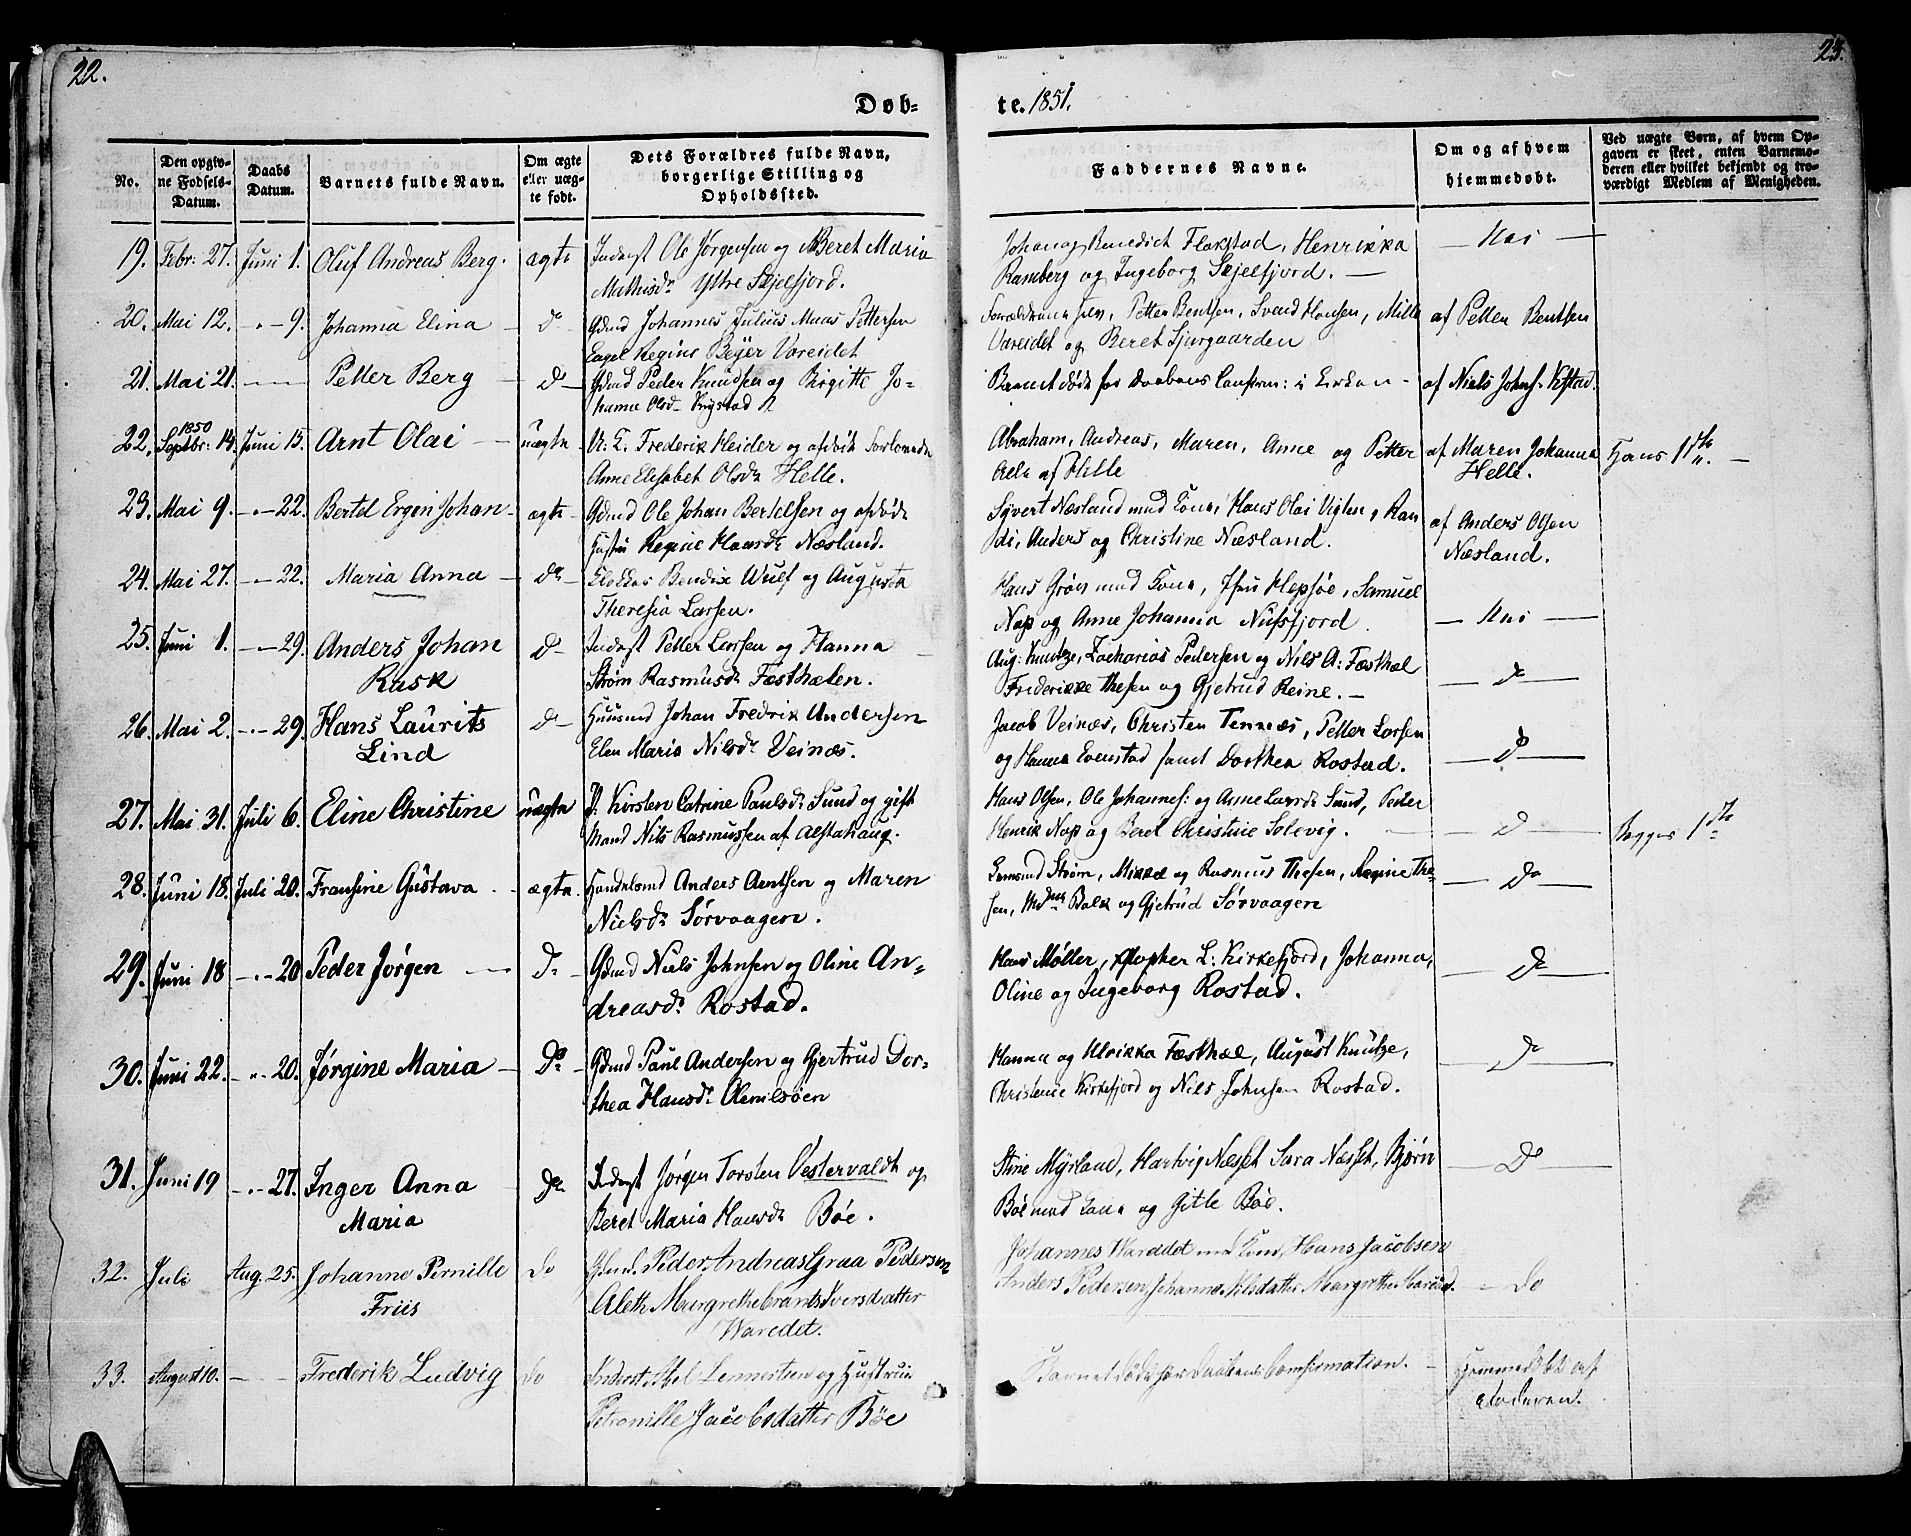 22.
23.
Døb-
te. 1851.
No.
Den opgiv-
ne Fødsels-
Datum.
Daabs
Datum.
Barnets fulde Navn.
Om ægte
eller uæg-
te født.
Dets Forældres fulde Navn,
borgerlige Stilling og
Opholdssted.
Faddernes Navne.
Om og af hvem
hjemmedøbt.
Ved uægte Børn, af hvem Op-
gaven er skeet, enten Barnemo-
deren eller hvilket bekjendt og tro-
værdigt Medlem af Menigheden.
19. Febr: 27. Juni 1. Oluf Andreas Berg. ægte Inderst Ole Jørgensen og Beret Maria
Mathisdr Yttre Skjelfjord.
Johan og Benedict Flakstad, Henrikka
Ramberg og Ingeborg Skjelfjord. — Nei —
20. Mai 12. -"- 9. Johanna Elina - do Gdmd Johannes Julius Maas Pettersen
Engel Regine Beyer Vareidet
Forældrene selv, Petter Bentsen, Svend Hansen, Mille
Vareidet og Beret Sjurgaarden
af Petter Bentsen
21. Mai 21. — Petter Berg - do - Gdmd Peder Knudsen og Birgitte Jo-
hanne Olsdr
Barnet døde før Daabens Confirm: i Kirken -
af Niels Johns.
22. 1850 Septbr: 14. Juni 15. Arnt Olai - uægte U: K. Frederik Heider og afdøde
Anne Elisabet Olsdr Helle.
Abraham, Andreas, Maren, Anne og Petter
Alle af Helle
af Maren Johanna
Helle.
23. Mai 9. -"- 22. Bertel Ergen Johan - ægte Gdmd Ole Johan Bertelsen og afdøde
Hustru Regine Hansdr Næsland.
Sivert Næsland med Kone, Hans Olai Vigten, Ran
di, Anders og Christine Næsland.
af Anders Olsen
Næsland.
24. Mai 27. -"- 22. Maria Anna - do - Klokker Bendix Wulf og Augusta
Theresia Larsen.
Hans Grøn med Kone, Hepsøe, Samuel
Nap og Anne Johanna Nufsfjord. — Nei —
25. Juni 1. -"- 29. Anders Johan
Rask
do - Inderst Petter Larsen og Hanna
Strøm Rasmusdr Fæsthælen.
Aug: Knutze, Zacharias Pedersen og Nils A: Fæsthæl
Frederikke Thesen og Gjetrud Reine. — do
26. Mai 2. -"- 29. Hans Laurits
Lind
do - Huusmd Johan Fredrik Andersen
Elen Maria Nilsdr Veinæs.
Jacob Veinæs, Christen Tennæs, Petter Larsen
og Hanna Evenstad samt Dorthea Rostad. do
27. Mai 31. Juli 6. Eline Christine uægte P. Kirsten Catrine Paulsdr Sund og gift
Mand Nils Rasmussen af Alstahaug.
Hans Olsen, Ole Johannes: og Anne Larsdr Sund, Peder
Henrik Nap og Beret Christine Solevig. do
28. Juni 18. Juli 20. Fransine Gustava - ægte. Handelsmd Anders Arntsen og Maren
Nielsdr Sørvaagen.
Strøm, Mikkel og Rasmus Thesen, Regine The-
sen, Balk og Gjetrud Sørvaagen
do
29. Juni 18 -"- 20 Peder Jørgen - do - Gdmd Niels Johnsen og Oline An-
dreasdr Rostad.
Hans Møller, L: Kirkefjord, Johanna,
Oline og Ingeborg Rostad. do
30. Juni 22. -"- 20. Jørgine Maria - do - Gdmd Paul Andersen og Gjertrud Dor-
thea Hansdr Olenilsøen
Hanna og Ulrikka Fæsthæl, August Knutze,
Christence Kirkefjord og Nils Johnsen Rostad. do
31. Juni 19 -"- 27. Inger Anna
Maria
do Inderst Jørgen Torsten Vestervaldt og
Beret Maria Hansdr Bøe.
Stine Myrland, Hartvig Næsset, Sara Næsset, Bjørn
Bøe med Kone og Gitle Bøe.
do
32. Juli Aug. 25. Johanne Pernille
Friis
do Gdmd. Peder Andreas Graa Pedersen
Aleth Margrethe Iversdatter
Waredet.
Johannes Waredet med Kone, Hans Jacobsen
Anders Pedersen, Johanna Nilsdatter Margrethe - do
33. August 10. — Frederik Ludvig do Inderst Abel Lennertsen og Hustrue
Petronille Jacobsdatter Bøe
Barnet døde før Daabens Comfirmation. -
Hjemmedøbt af